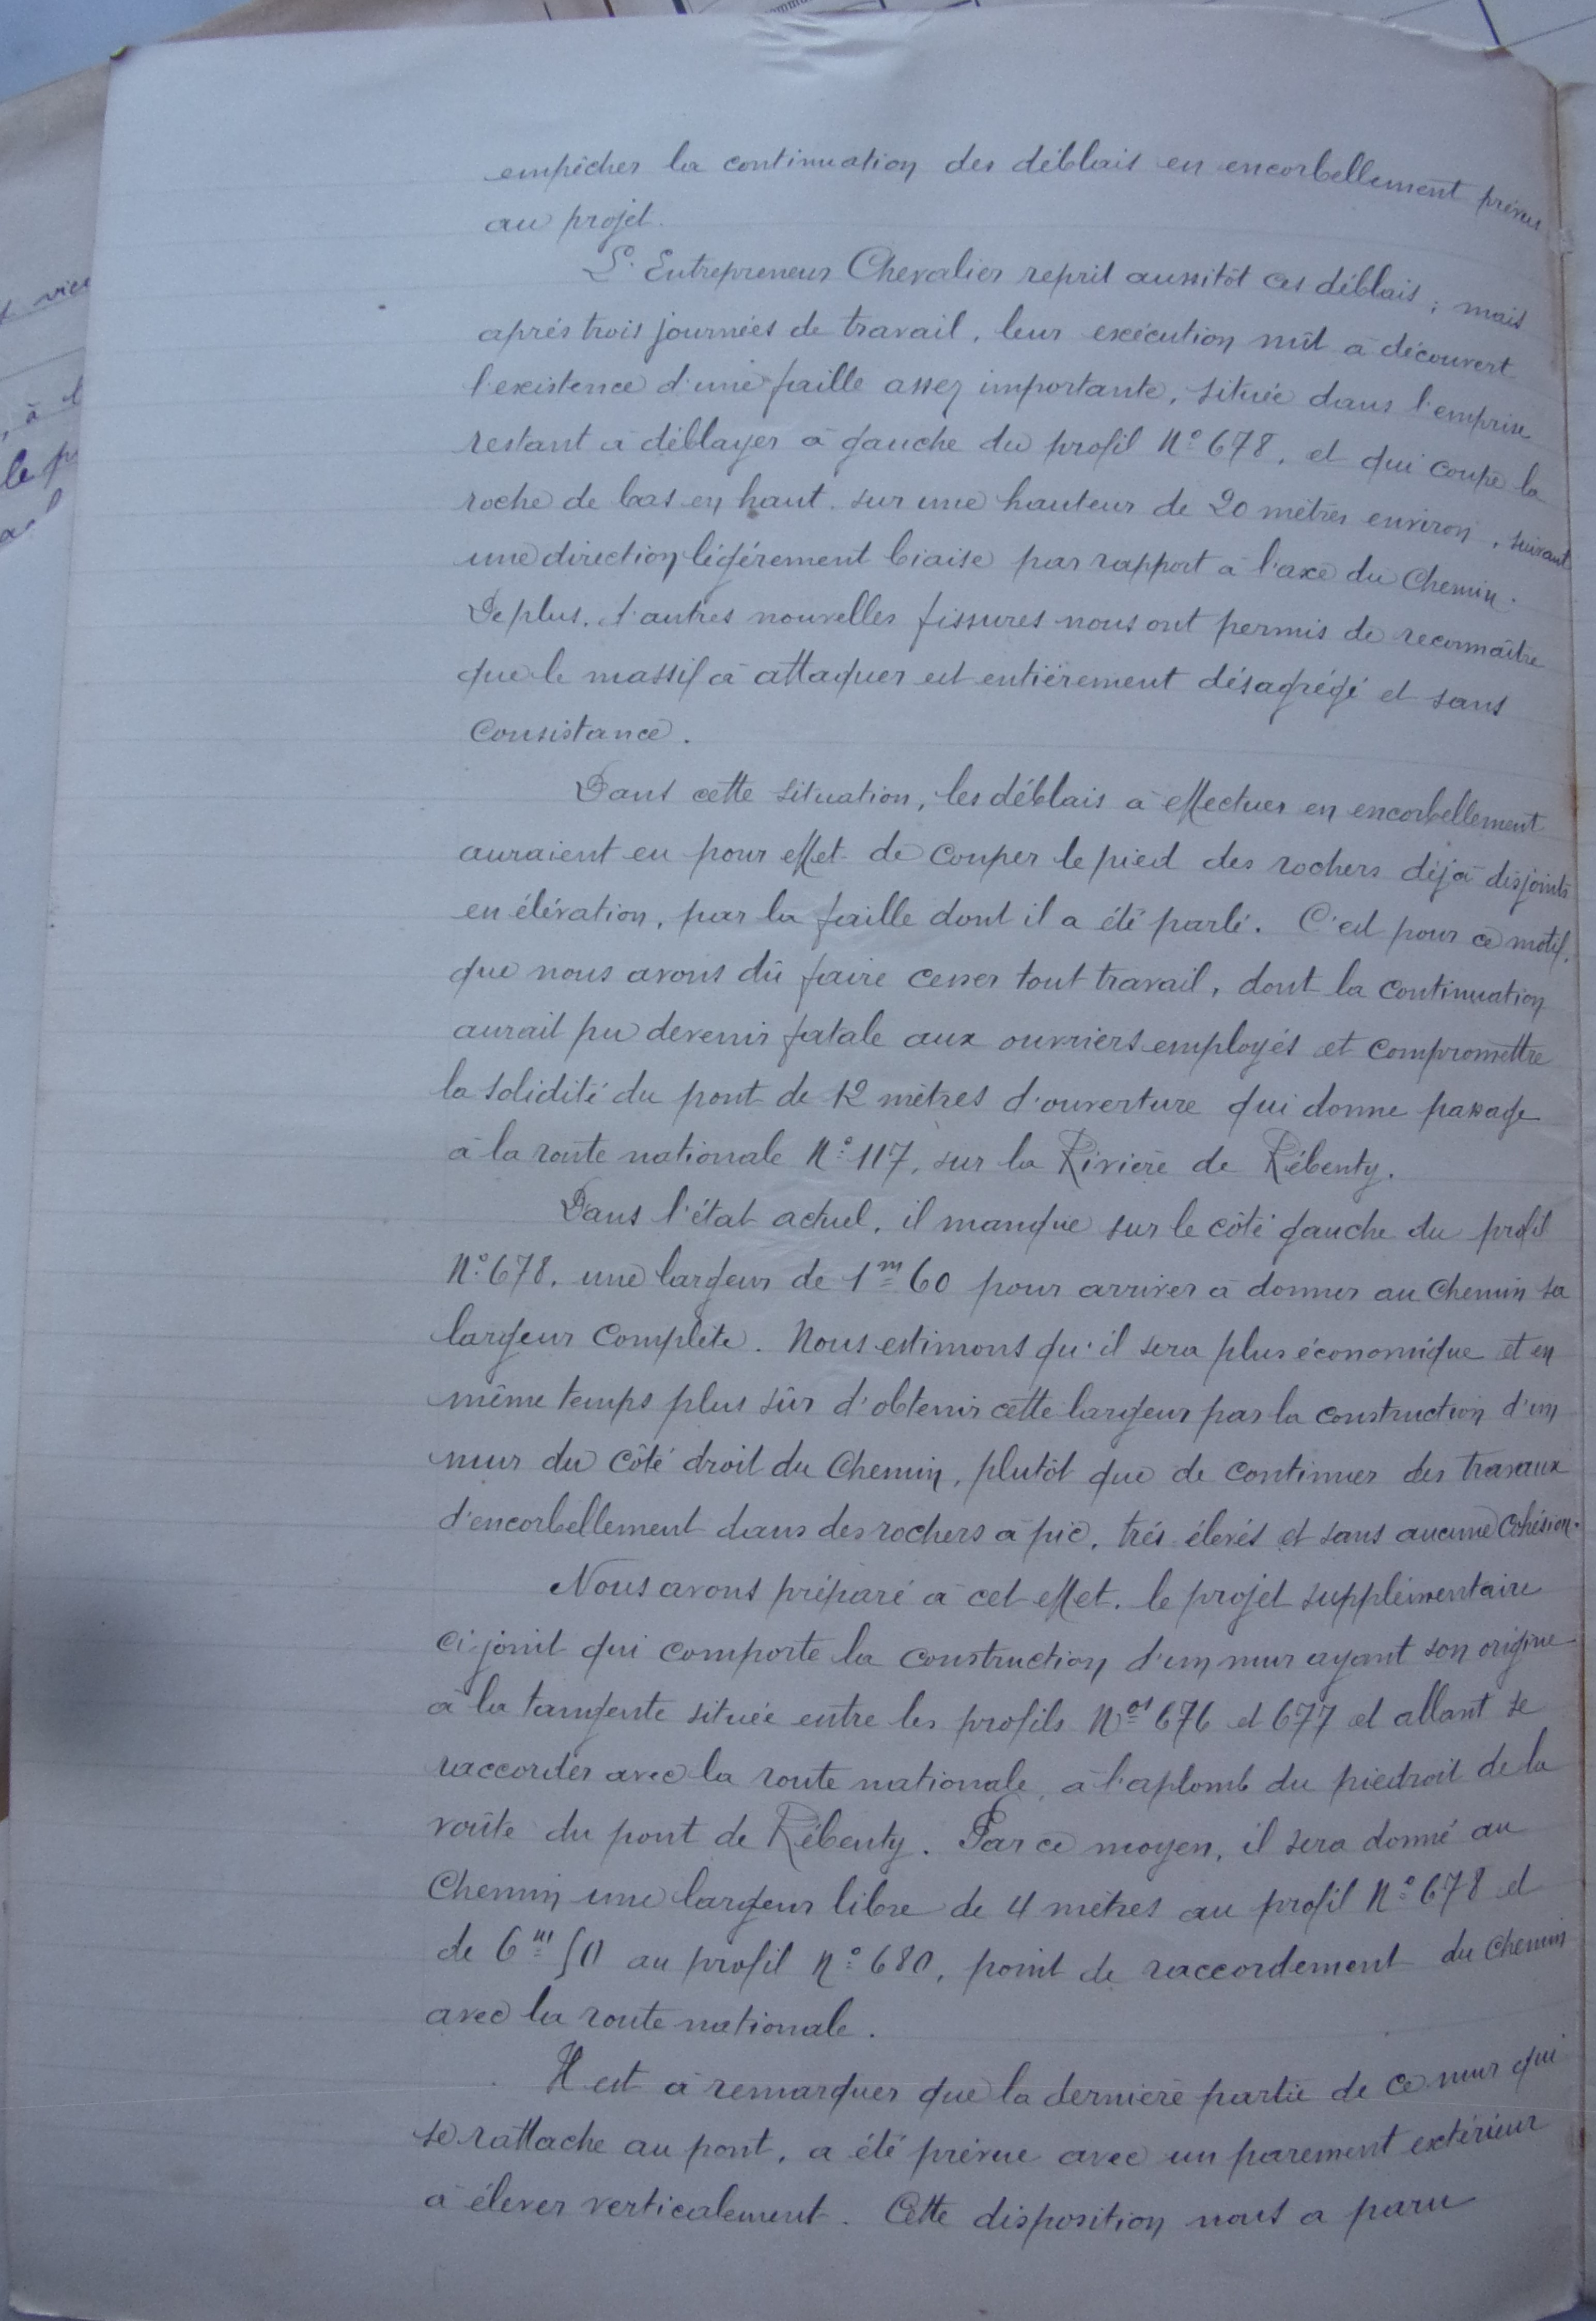 empêcher la continuation des déblais en encorbellement prévus
au projet.
L'Entrepreneur Chevalier reprit aussitôt ces déblais ; mais
après trois journées de travail, leur exécution mît à découvert
l'existence d'une faille assez importante, située dans l'emprise
restant à déblayer à gauche du profil N° 678, et qui coupe la
roche de bas en haut sur une hauteur de 20 mètres environ, suivant
une direction légèrement biaise par rapport à l'axe du Chemin.
De plus, d'autres nouvelles fissures nous ont permis de reconnaître
que le massif à attaquer est entièrement désagrégé et sans
consistance.
Dans cette situation, les déblais à effectuer en encorbellement
auraient eu pour effet de couper le pied des rochers déjà disjoints
en élévation, par la faille dont il a été parlé. C'est pour ce motif,
que nous avons dû faire cesser tout travail, dont la continuation
aurait pu devenir fatale aux ouvriers employés et compromettre
la solidité du pont de 12 mètres d'ouverture qui donne passage
à la route nationale N° 117, sur la Rivière de Rébenty.
Dans l'état actuel, il manque sur le côté gauche du profil
N° 678, une largeur de 1m 60 pour arriver à donner au Chemin sa
largeur complète. Nous estimons qu'il sera plus économique et en
même temps plus sûr d'obtenir cette largeur par la construction d'un
mur du côté droit du Chemin, plutôt que de continuer des travaux
d'encorbellement dans des rochers à pic, très élevés et sans aucune Cohésion.
Nous avons préparé à cet effet, le projet supplémentaire
ci-joint qui comporte la construction d'un mur ayant son origine
à la tangente située entre les profils Nos 676 et 677 et allant se
raccorder avec la route nationale, à l'aplomb du piedroit de la
voûte du pont de Rébenty. Par ce moyen, il sera donné au
Chemin une largeur libre de 4 mètres au profil N° 678 et
de 6m 50 au profil N° 680, point de raccordement du Chemin
avec la route nationale.
Il est à remarquer que la dernière partie de ce mur qui
se rattache au pont, a été prévue avec un parement extérieur
à élever verticalement. Cette disposition nous a paru